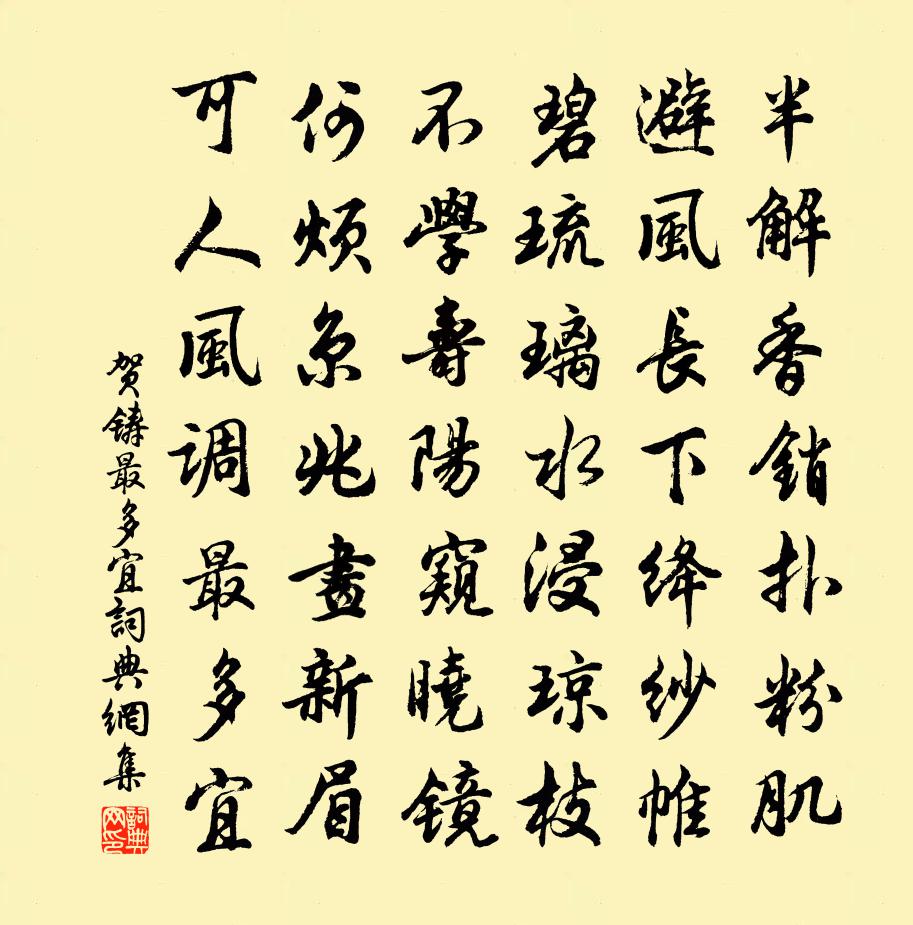 半解香銷扑粉肌
避風長下绛纱帷
碧琉璃水浸琼枝
不學壽陽窺曉镜
何烦京兆畫新眉
可人風调最多宜
贺鑄最多宜詞典網集
詞典網印